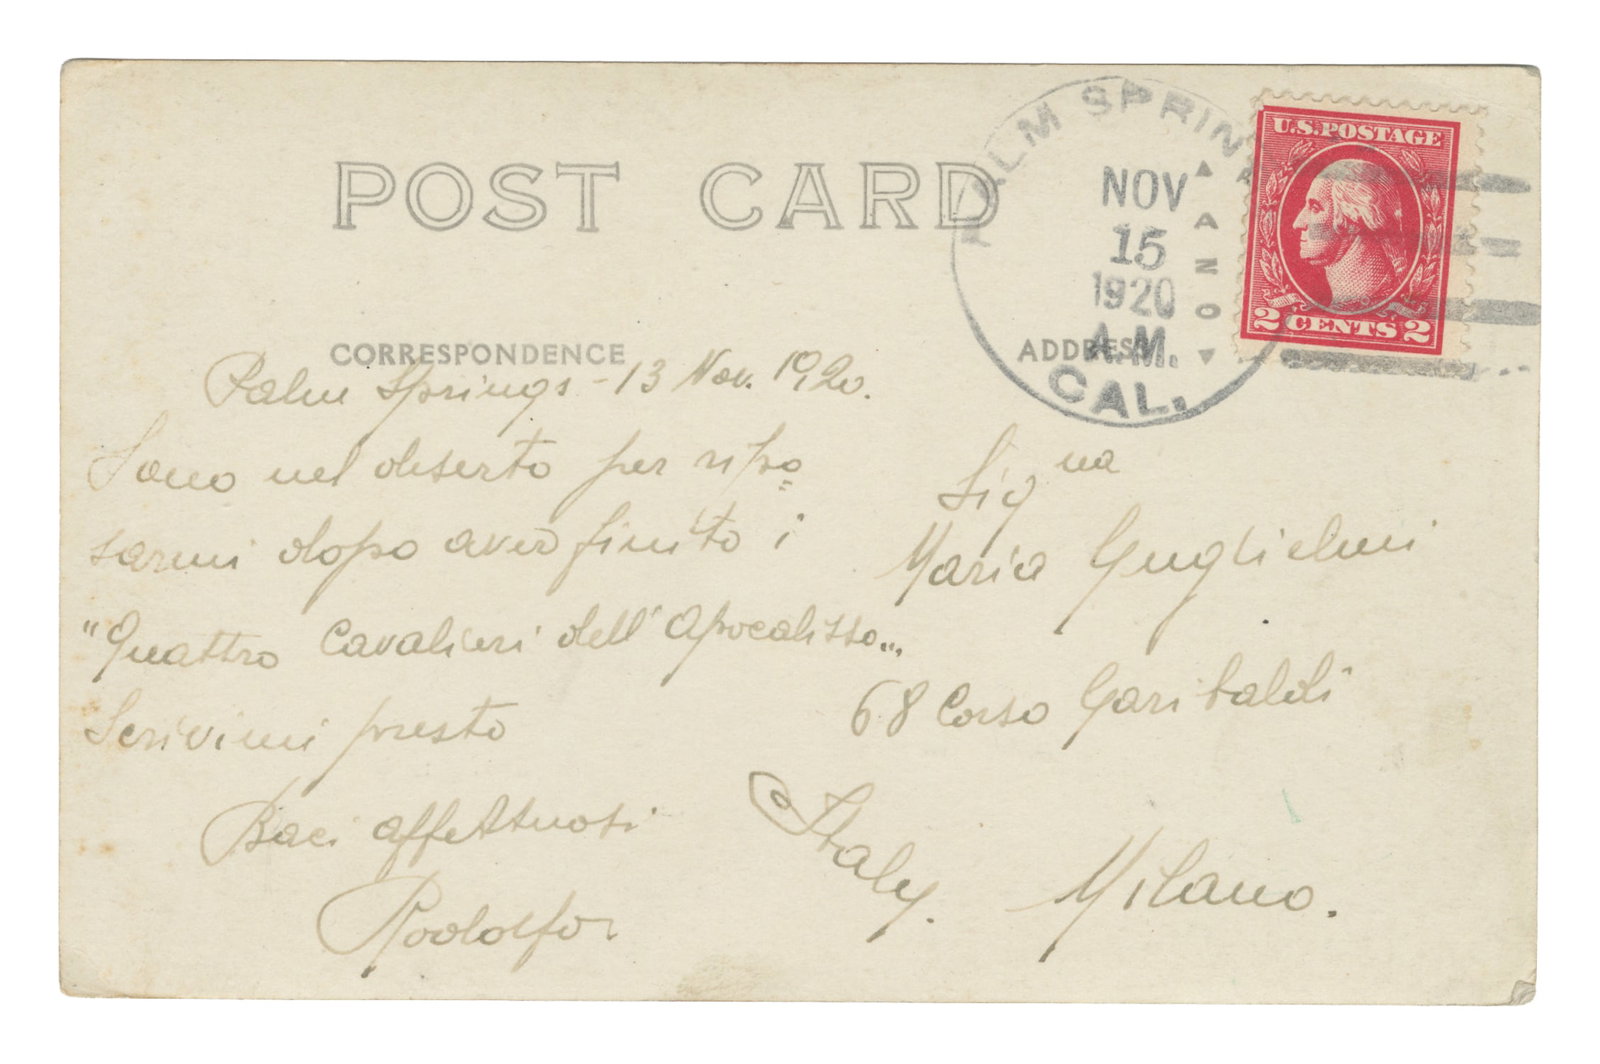 POST CARD
PALM SPRINGS
NOV
15
1920
A.M.
CAL.
U.S. POSTAGE
2 CENTS 2
CORRESPONDENCE
ADDRESS
Palm Springs - 13 Nov. 1920.
Sono nel deserto per ripo=
sarmi dopo aver finito i
"Quattro Cavalieri dell' Apocalisse"
Scrivimi presto
Baci affettuosi
Rodolfo.
Sig na
Maria Guglielmi
68 Corso Garibaldi
Milano.
Italy.